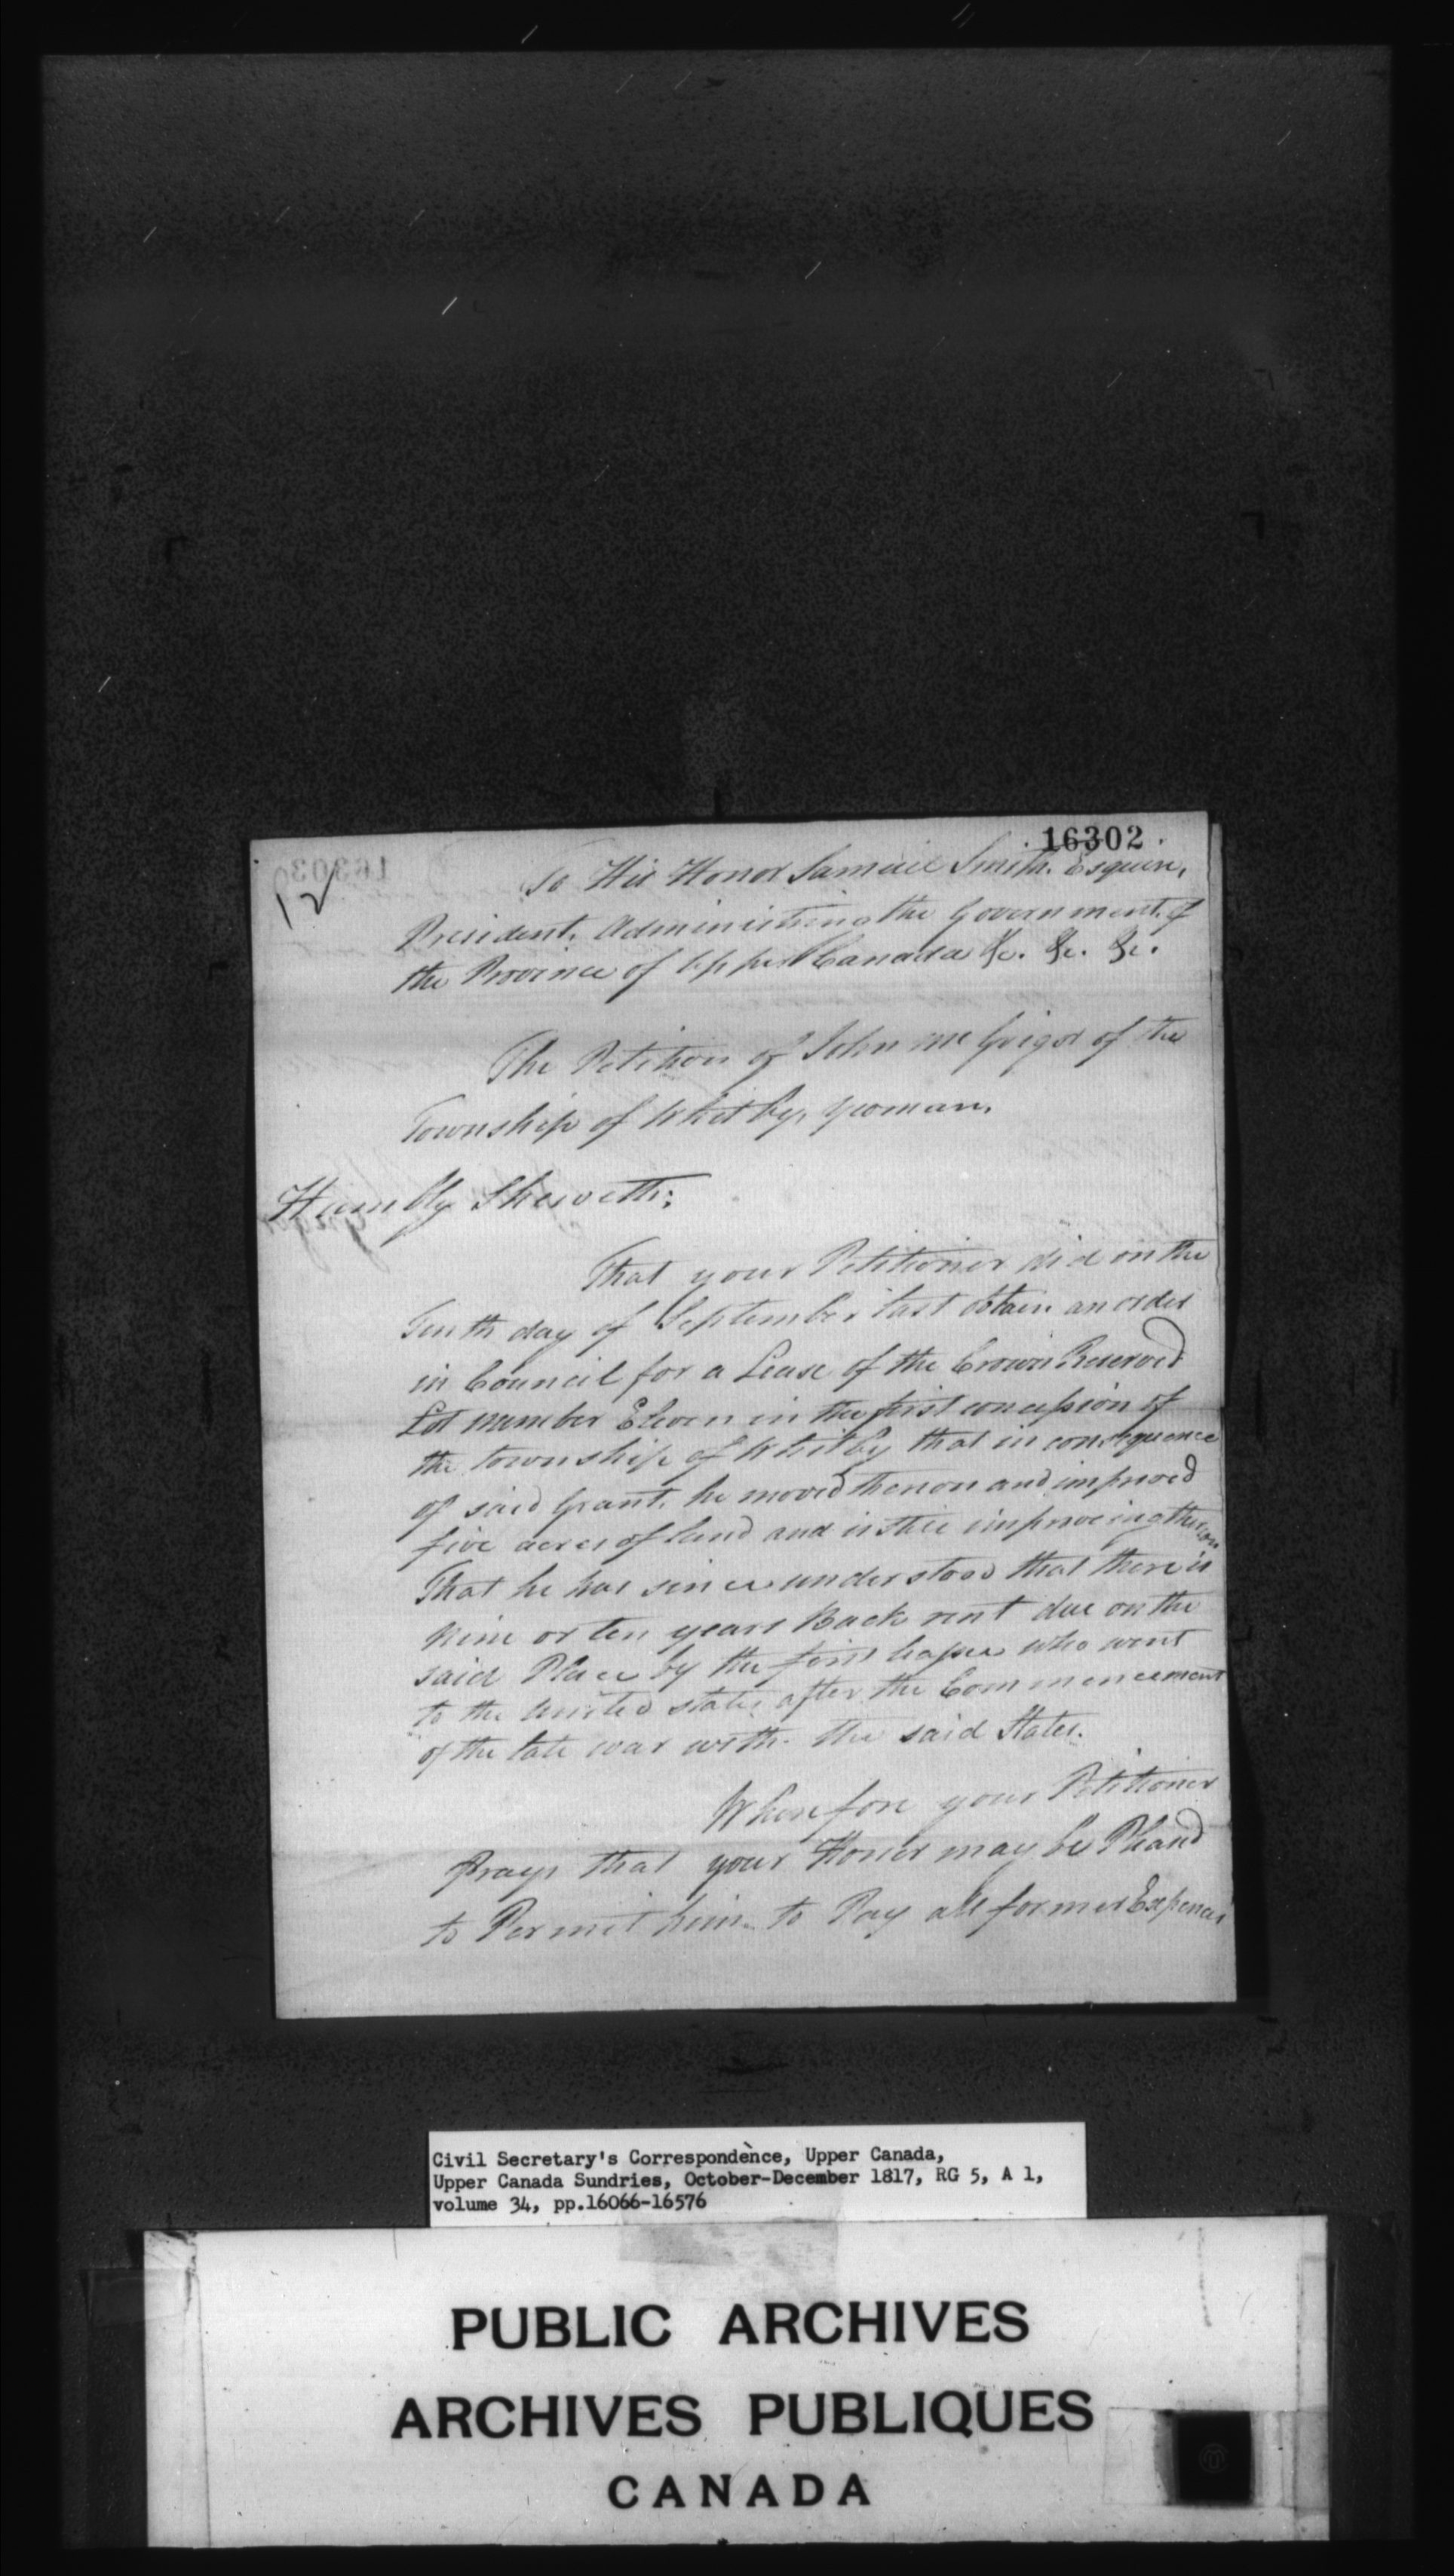 16302
12
To His Honor Samuel Smith. Esquire,
President, Administring the Government of
the Province of Upper Canada &c. &c. &c.
The Petition of John McGrigor of the
Township of Whitby, yeoman,
Humbly Sheweth;
That your Petitioner did on the
Tenth day of September last obtain an order
in Council for a Lease of the Crown Reserved
Lot number Eleven in the first concession of
the township of Whitby that in consequence
of said Grant, he moved thereon and improved
five acres of land and is still improveing thereon
That he has since understood that there is
nine or ten years Back rent due on the
said Place by the first leasee who went
to the United states after the Commencement
of the late war with the said States.
Wherefore your Petitioner
Prays that your Honor may be Pleasd
to Permit him to Pay all former Expences
Civil Secretary's Correspondence, Upper Canada,
Upper Canada Sundries, October-December 1817, RG 5, A 1,
volume 34, pp.16066-16576
PUBLIC ARCHIVES
ARCHIVES PUBLIQUES
CANADA